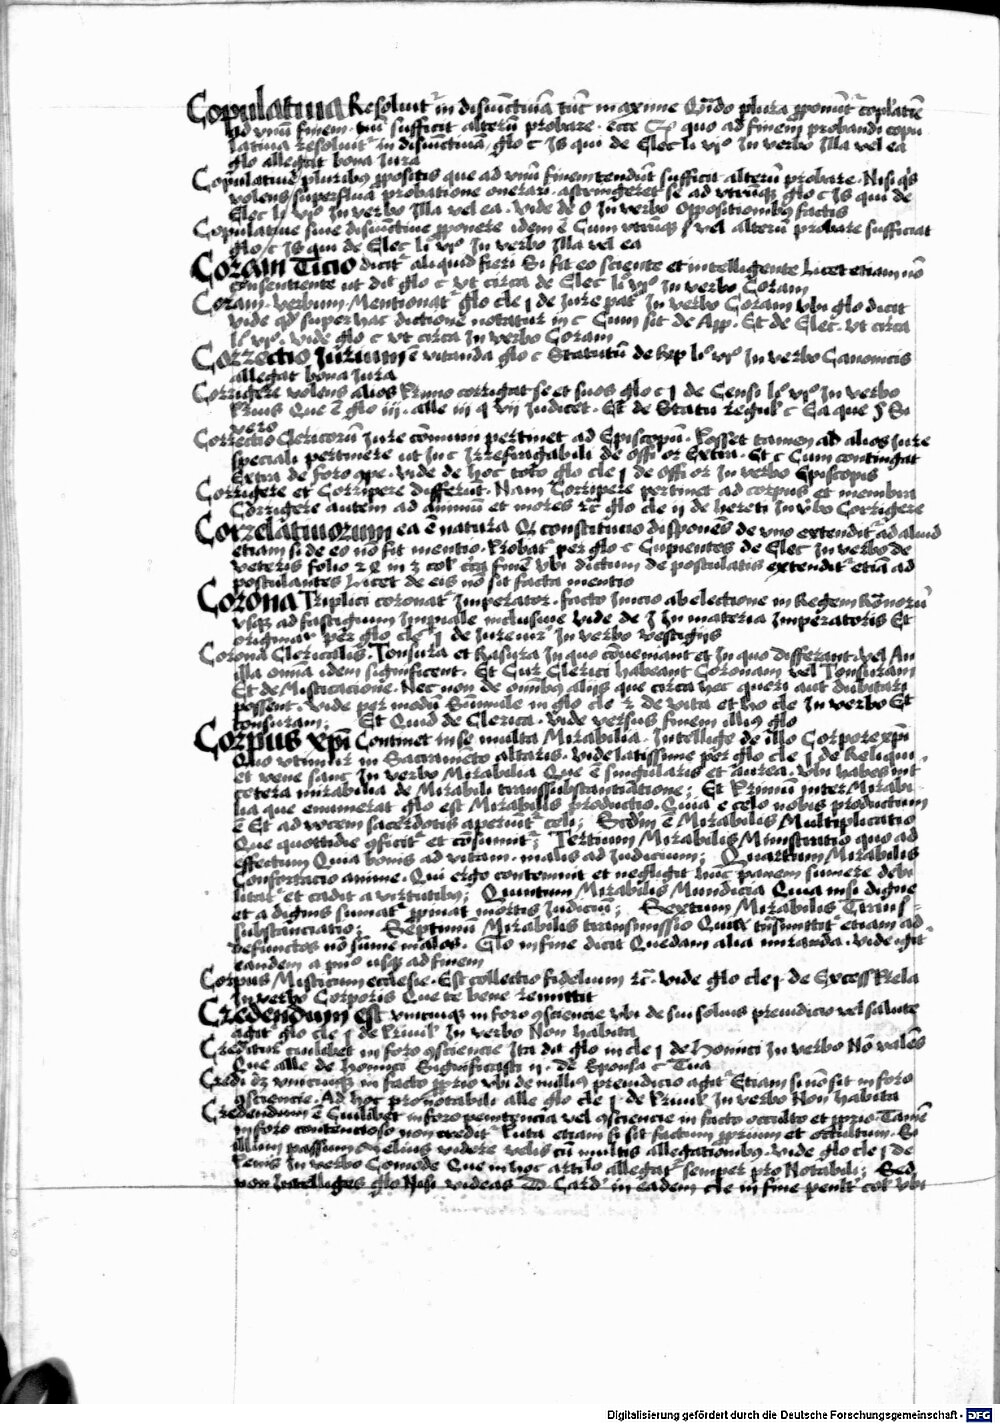 Copulatiua Resoluit᷑ in disiu̅ctiua̅ tu̅c maxime Qn̅do plura ꝓponu̅t᷑ coplatiē
ad vnu̅ finem. tu̅c sufficit alteru̅ probare. ecce quo ad finem probandi copu
latiua resoluit᷑ in disiu̅ctiua̅ glo c Is qui de Elec li vjº In verbo Illa vel ea
glo allegat bona Iura
Copulatiue pluribꝰ ꝓpositis que ad vnu̅ finem tendu̅t sufficit alteru̅ probare. Nisi q̅s
volens superflua probatione onerari. astringeret se ad vtru̅qꝫ glo c Is qui de
Elec li vjº In verbo Illa vel ea. vide de O In verbo Oppositionibꝰ factis
Copulatiue siue disiu̅ctiue ꝓponere idem ē Cum vtru̅qꝫ vel alteru̅ probare sufficiat
glo c Is qui de Elec li vjº In verbo Illa vel ea
Coram Ticio dicit᷑ aliquid fieri Si fit eo sciente et intelligente Licet etiam no̅
consentiente ut dit glo c vt circa de Elec li vjº In verbo Coram
Coram. verbum. Mentionat᷑ glo cle j de Iure pat᷑ In verbo Coram vbi glo dicit
vide qd super hac dictione notatur in c Cum sit de App. Et de Elec. vt circa
li vjº. vide glo c vt circa In verbo Coram
Correctio Iurium ē vitanda glo c Statutu̅ de Rep li vjº In verbo Canonicis
allegat bona Iura
Corrigere volens alios Primo corrigat se et suos glo c j de Censi li vjº In verbo
Prius Que ē glo iij. alle iij q vij Iudicet. Et de Statu regul᷑ c Ea que § Si
vero
Correctio Clericoru̅ Iure co̅muni pertinet ad Episcopu̅. Posset tamen ad alios Iure
speciali pertinere ut In c Irrefragabili de offi or Extra. Et c Cum contingat
Extra de foro ꝯpe. vide de hoc toto glo cle j de offi or In verbo Episcopis
Corrigere et Corripere differu̅t. Nam Corripere pertinet ad corpus et membra
Corrigere autem ad animu̅ et mores rc̅ glo cle ij de hereti In v̅bo Corrigere
Correlatiuorum ea ē natura Qꝫ constitucio dispone̅s de vno extendit᷑ ad aliud
etiam si de eo no̅ fit mentio. Probat᷑ per glo c Cupientes de Elec In verbo de
veteris folio in col circa fine̅ vbi dictum de postulatis extendit᷑ etia̅ ad
postulantes Licet de eis no̅ sit facta mentio
Corona Triplici coronat᷑ Imperator. facto Inicio ab electione in Regem Ro̅noru̅
vsqꝫ ad fastigium Impiale inclusiue vide de I In materia Imperatoris Et
originat᷑ per glo cle j de Iureiur᷑ In verbo vestigijs
Corona Clericalis. Tonsura et Rasura In quo co̅ueniant et In quo differant. vel An
illa omia̅ idem significent. Et Cur Clerici habeant Coronam vel Tonsuram
Et de Misticacione. Nec non de omibꝰ alijs que circa hec queri aut dubitari
possent. vide per modu̅ Summule in glo cle 2 de vita et ho cle In verbo Et
tonsuram; Et Quid de Clerica. vide versus finem illiꝰ glo
Corpus xp̅i Continet in se multa Mirabilia. Intellige de illo Corpore xp̅i
Quo vtimur in Sacrame̅to altaris. vide latissime per glo cle j de Reliqui
et vene sanc In verbo Mirabilia Que ē singularis et aurea. vbi habes int᷑
cetera mirabilia de Mirabili transsubstantia̅tione; Et Primu̅ inter Mirabi
lia que enumerat glo est Mirabilis productio. Quia e celo nobis productum
ē Et ad vocem sacerdotis aperiu̅t᷑ celi; Sedm̅ ē Mirabilis Multiplicatio
Que quottidie ꝯficit᷑ et co̅sumit᷑; Tertium Mirabilis Ministratio quo ad
effectum Quia bonis ad vitam. malis ad Iudicium; Quartum Mirabilis
Confortacio anime. Qui ergo contemnit et negligit hu̅c panem sumere debi
litat᷑ et cadit a virtutibꝰ; Quintum Mirabilis Mundicia Quia nisi digne
et a dignis sumat᷑ ꝓpinat mortis Iudiciu̅; Sextum Mirabilis Trans-
substanciatio; Septimu̅ Mirabilis transmissio Quia tra̅smittit᷑ etiam ad
defunctos no̅ su̅me malos. Glo in fine dicit Quedam alia miranda. vide igit᷑
eandem a pnº usqꝫ ad finem
Corpus Misticum ecclesie. Est collectio fidelium rc̅. vide glo cle j. de Excess Prela
In verbo Corporis Que te bene remittit
Credendum est vnicuiqꝫ in foro ꝯsciencie vbi de sui soliꝰ preiudicio vel salute
agit᷑ glo cle j de Priuil᷑ In verbo Non habita
Creditur cuilibet in foro ꝯsciencie Ita dit glo in cle j de Homici In verbo No̅ vale̅s
Que alle de Homici Significasti ij. de Sponsa c Tua
Credi dꝫ vnicuiqꝫ in facto ꝓprio vbi de nulliꝰ preiudicio agit᷑ Etiam si no̅ sit in foro
ꝯsciencie. Ad hoc pro notabili alle glo cle j. de Priuil᷑ In verbo Non habita
Credendum ē Cuilibet in foro penitencia̅ vel ꝯsciencie in facto occulto et ꝓprio. Tame̅
in foro contencioso non credit᷑ Puta etiam si sit factum ꝓprium et occultum. Si
illum passum meliꝰ videre velis cu̅ multis allegationibꝰ. vide glo cle j de
Penis In verbo Comode Que in hoc arti̅lo allegat᷑ semper pro Notabili; Sed
non intelliges glo Nisi videas D. Card᷑ in eadem cle in fine penlt᷑ col vbi
Digitalisierung gefördert durch die Deutsche Forschungsgemeinschaft - DFG